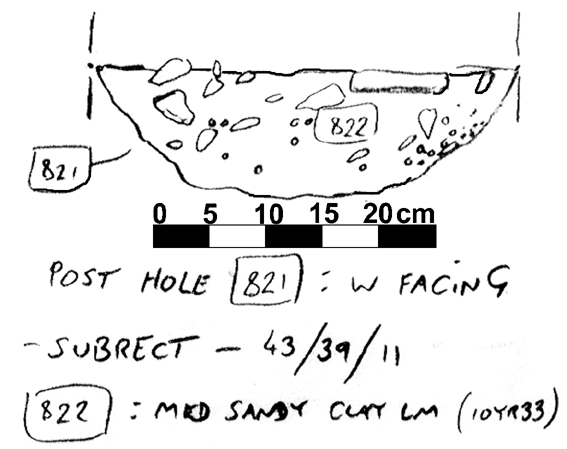 822
821
0 5 10 15 20 cm
POST HOLE 821 : W FACING
- SUBRECT - 43/39/11
822 : MED SANDY CLAY LM (10YR33)